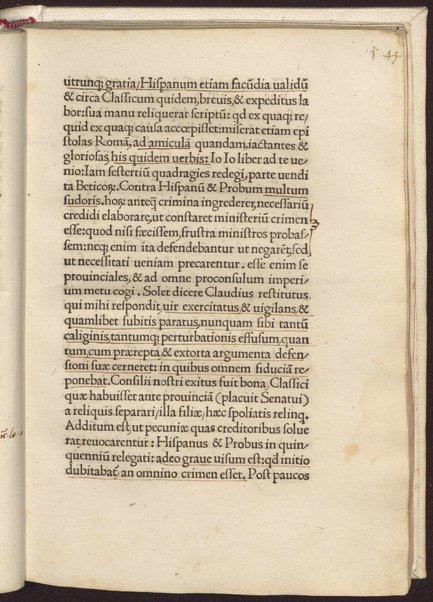 utrunq; gratia, Hispanum etiam facūdia validū
& circa Classicum quidem, brevis, & expeditus la
bor: sua manu reliquerat scriptū: qd ex quaq; re,
quid ex quaq; causa accœpisset: miserat etiam epi
stolas Romā, ad amiculā quandam, iactantes &
gloriosas, his quidem verbis: Io Io liber ad te ve
nio: Iam sestertiū quadragies redegi, parte vendi
ta Beticoꝝ. Contra Hispanū & Probum multum
sudoris. hoꝝ anteq̃ crimina ingrederer, necessariū
credidi elaborare, ut constaret ministeriū crimen
esse: quod nisi fæcissem, frustra ministros probas/
sem: neq; enim ita defendebantur ut negarēt, sed
ut necessitati veniam precarentur. esse enim se
provinciales, & ad omne proconsulum imperi/
um metu cogi. Solet dicere Claudius restitutus,
qui mihi respondit, vir exercitatus, & vigilans, &
quamlibet subitis paratus, nunquam sibi tantū
caliginis, tantumq; perturbationis effusum, quan
tum, cum præerepta, & extorta argumenta defen/
sioni suæ cerneret: in quibus omnem fiduciā re/
ponebat. Consilii nostri exitus fuit bona, Classici
quæ habuisset ante provinciā (placuit Senatui)
a reliquis separari, illa filiæ, hæc spoliatis relinq.
Additum est, ut pecuniæ quas creditoribus solue
rat, revocarentur: Hispanus & Probus in quin/
quenniū relegati: adeo grave visum est: qd initio
dubitabat̃, an omnino crimen esset. Post paucos